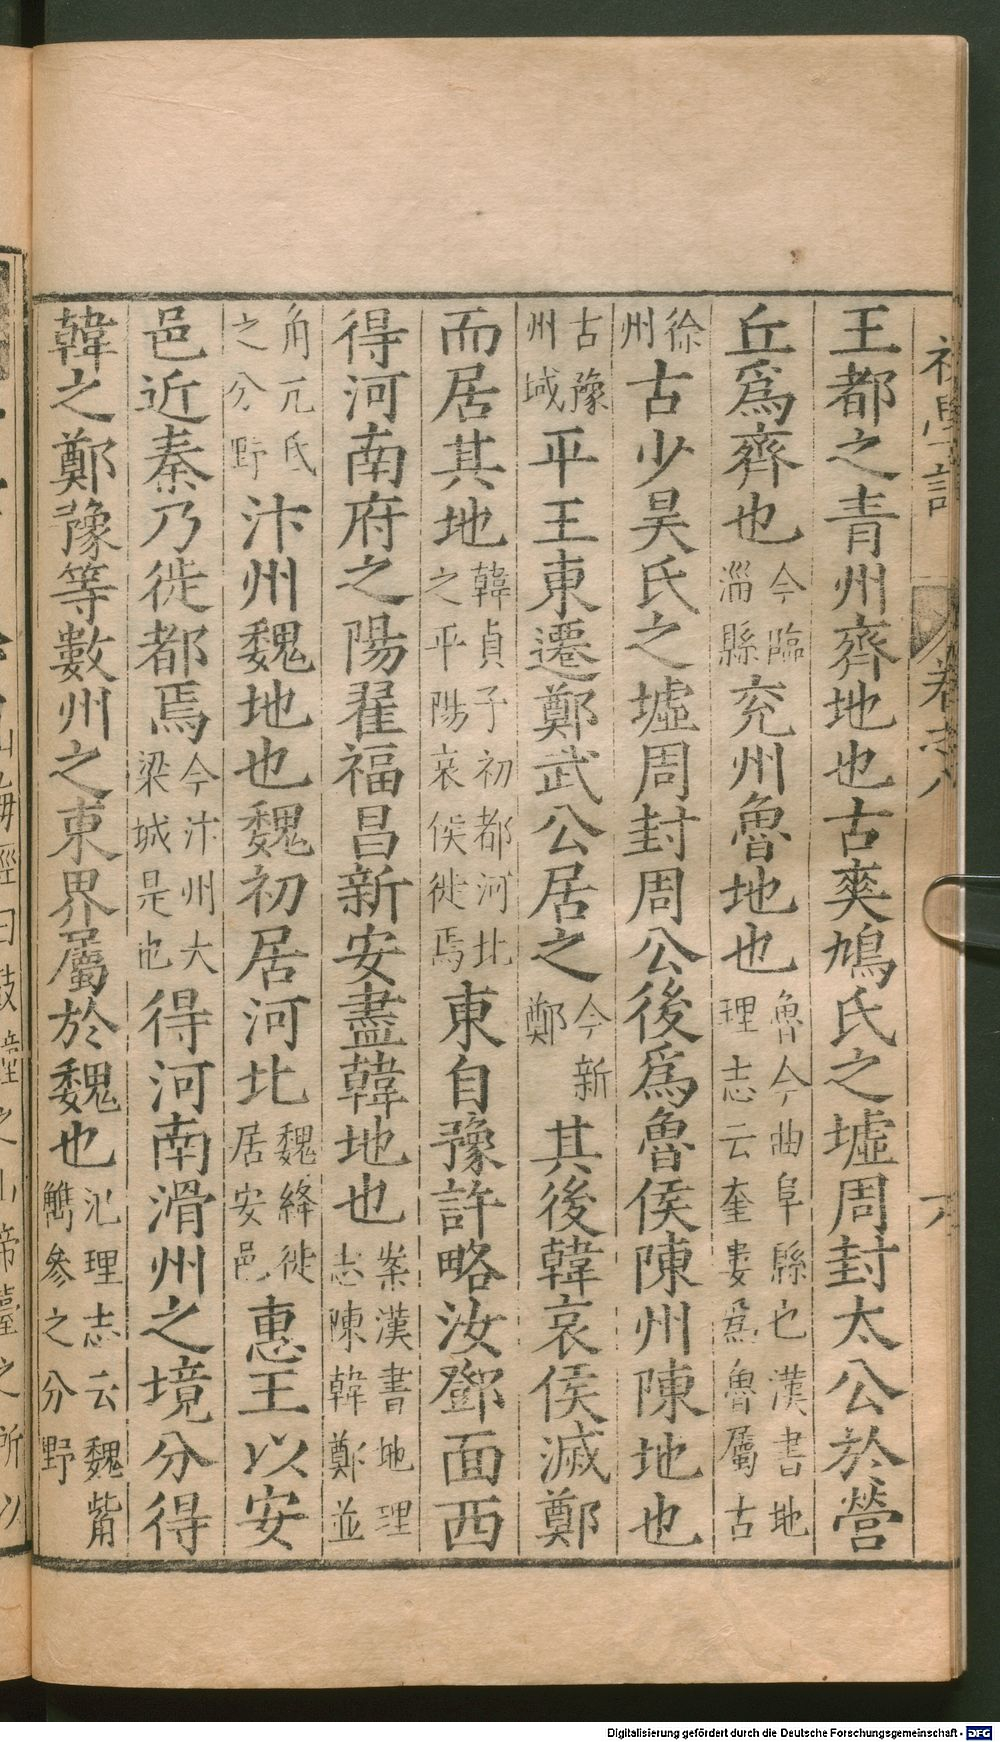 王都之青州齊地也古爽鳩氏之墟周封太公於營
丘爲齊也今臨淄縣兖州魯地也魯今曲阜縣也漢書地理志云奎婁爲魯屬古
徐州古少昊氏之墟周封周公後爲魯侯陳州陳地也
古豫州域平王東遷鄭武公居之今新鄭其後韓哀侯滅鄭
而居其地韓貞子初都河北之平陽哀侯徙焉東自豫許略汝鄧面西
得河南府之陽翟福昌新安盡韓地也案漢書地理志陳韓鄭並
角亢氐之分野汴州魏地也魏初居河北魏絳徙居安邑惠王以安
邑近秦乃徙都焉今汴州大梁城是也得河南滑州之境分得
韓之鄭豫等數州之東界屬於魏也地理志云魏觜觽參之分野
初學記
卷之八
六
Digitalisierung gefördert durch die Deutsche Forschungsgemeinschaft - DFG